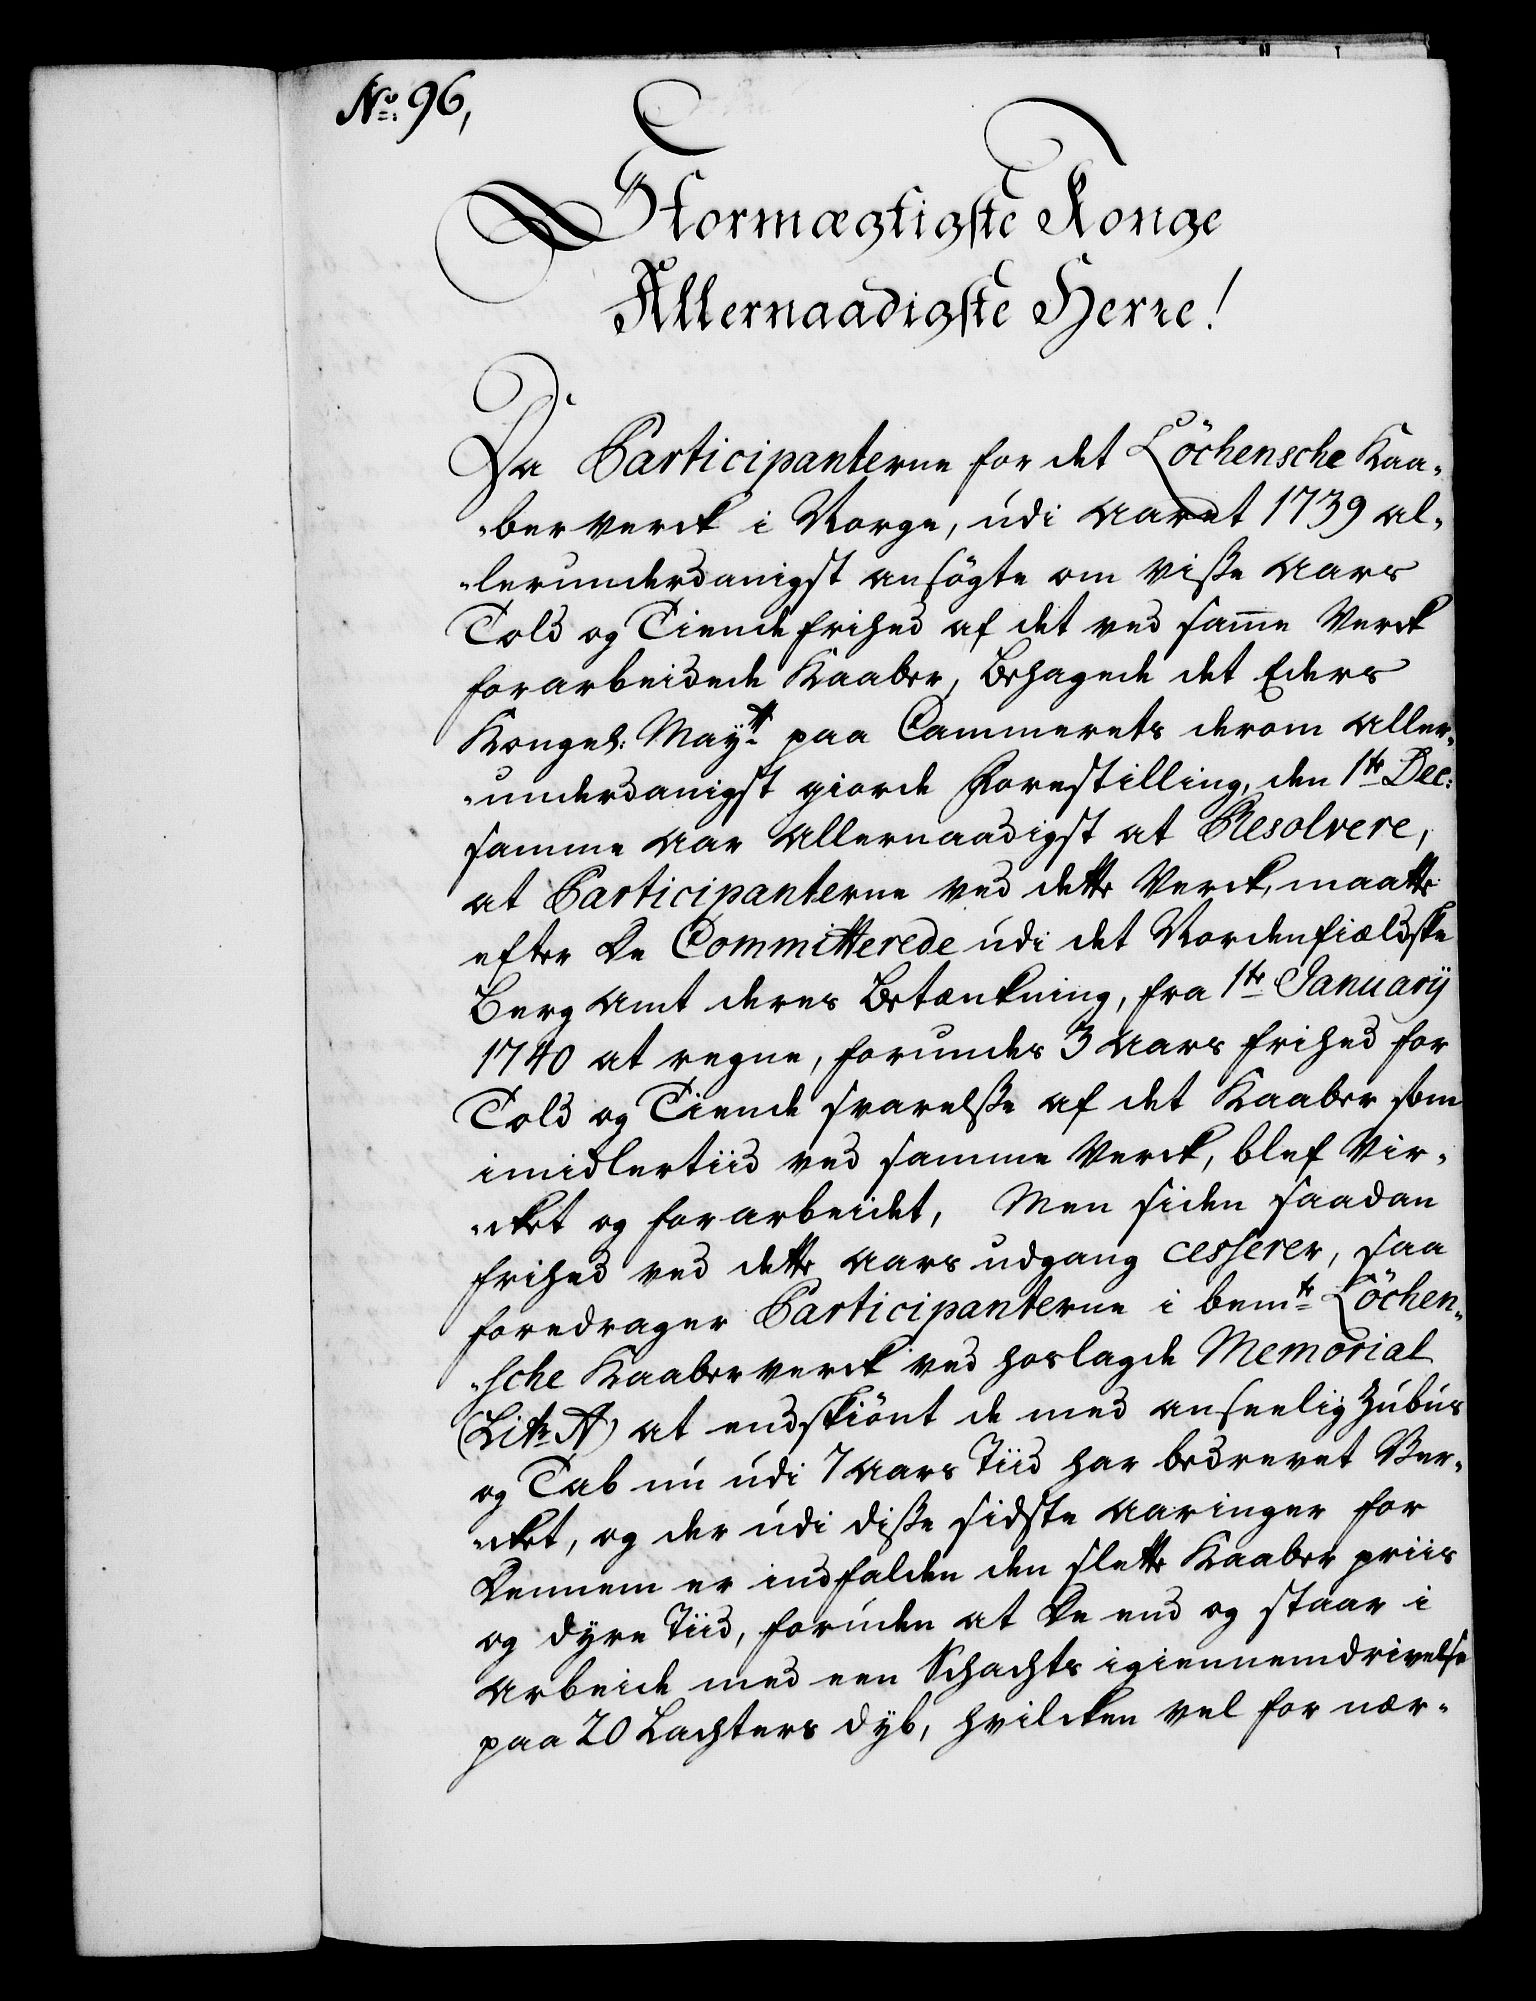 No: 96,
Stormægtigste Konge
Allernaadigste Herre!
Da Participanterne for det Löchensche Kaa-
-berverck i Norge, udi Aaret 1739 al-
-lerunderdanigst ansögte om visse Aars
Told og Tiende frihed af det ved samme Verck
forarbeidede Kaaber, Behagede det Eders
Kongel: Mayt: paa Cammerets derom Aller-
-underdanigst giorde Forestilling, den 1te Dec:
samme Aar Allernaadigst at Resolvere,
at Participanterne ved dette Verck, maatte
efter De Committerede udi det Nordenfieldske
Berg Amt deres Betænkning, fra 1te Januarij
1740 at regne, forundes 3 Aars frihed for
Told og Tiende svarelsse af det Kaaber som
imidlertiid ved samme Verck, blef Vir-
-cket og forarbeidet, Men siden saadan
frihed ved dette Aars udgang cesserer, saa
foredrager Participanterne i bemte Löchen-
-sche Kaaberverck ved hoslagde Memorial
(Litr: A) at endskiönt de med anseelig Zubus
og Tab nu udi 7 Aars Tiid har bedrevet Ver-
-cket, og der udi disse sidste Aaringer for
Dennem er indfalden den slette Kaaber priis
og dyre Tiid, foruden at De end og staar i
Arbeide med een Schachts igiennemdrivelse
paa 20 Lachters dyb, hvilcken vel for nær-